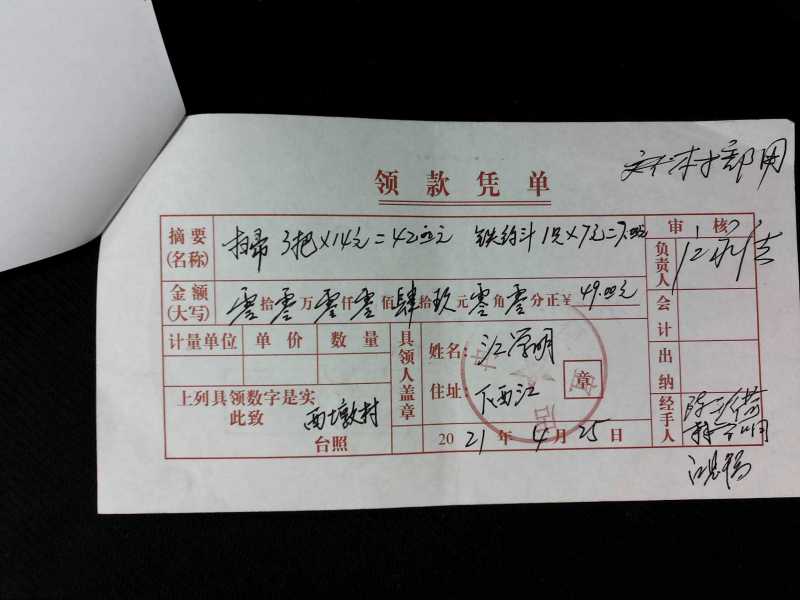 村部用
领款凭单
摘要(名称) 扫帚 3把×14元=42.00元 铁约斗 1只×7元=7.00元 审核
金额(大写) 零拾零万零仟零佰肆拾玖元零角零分正¥49.00元 负责人
计量单位 单价 数量 具领人盖章 姓名:江学明 会计
住址:下西江 章 出纳
上列具领数字是实
此致 西墩村
台照 2021年4月25日 经手人